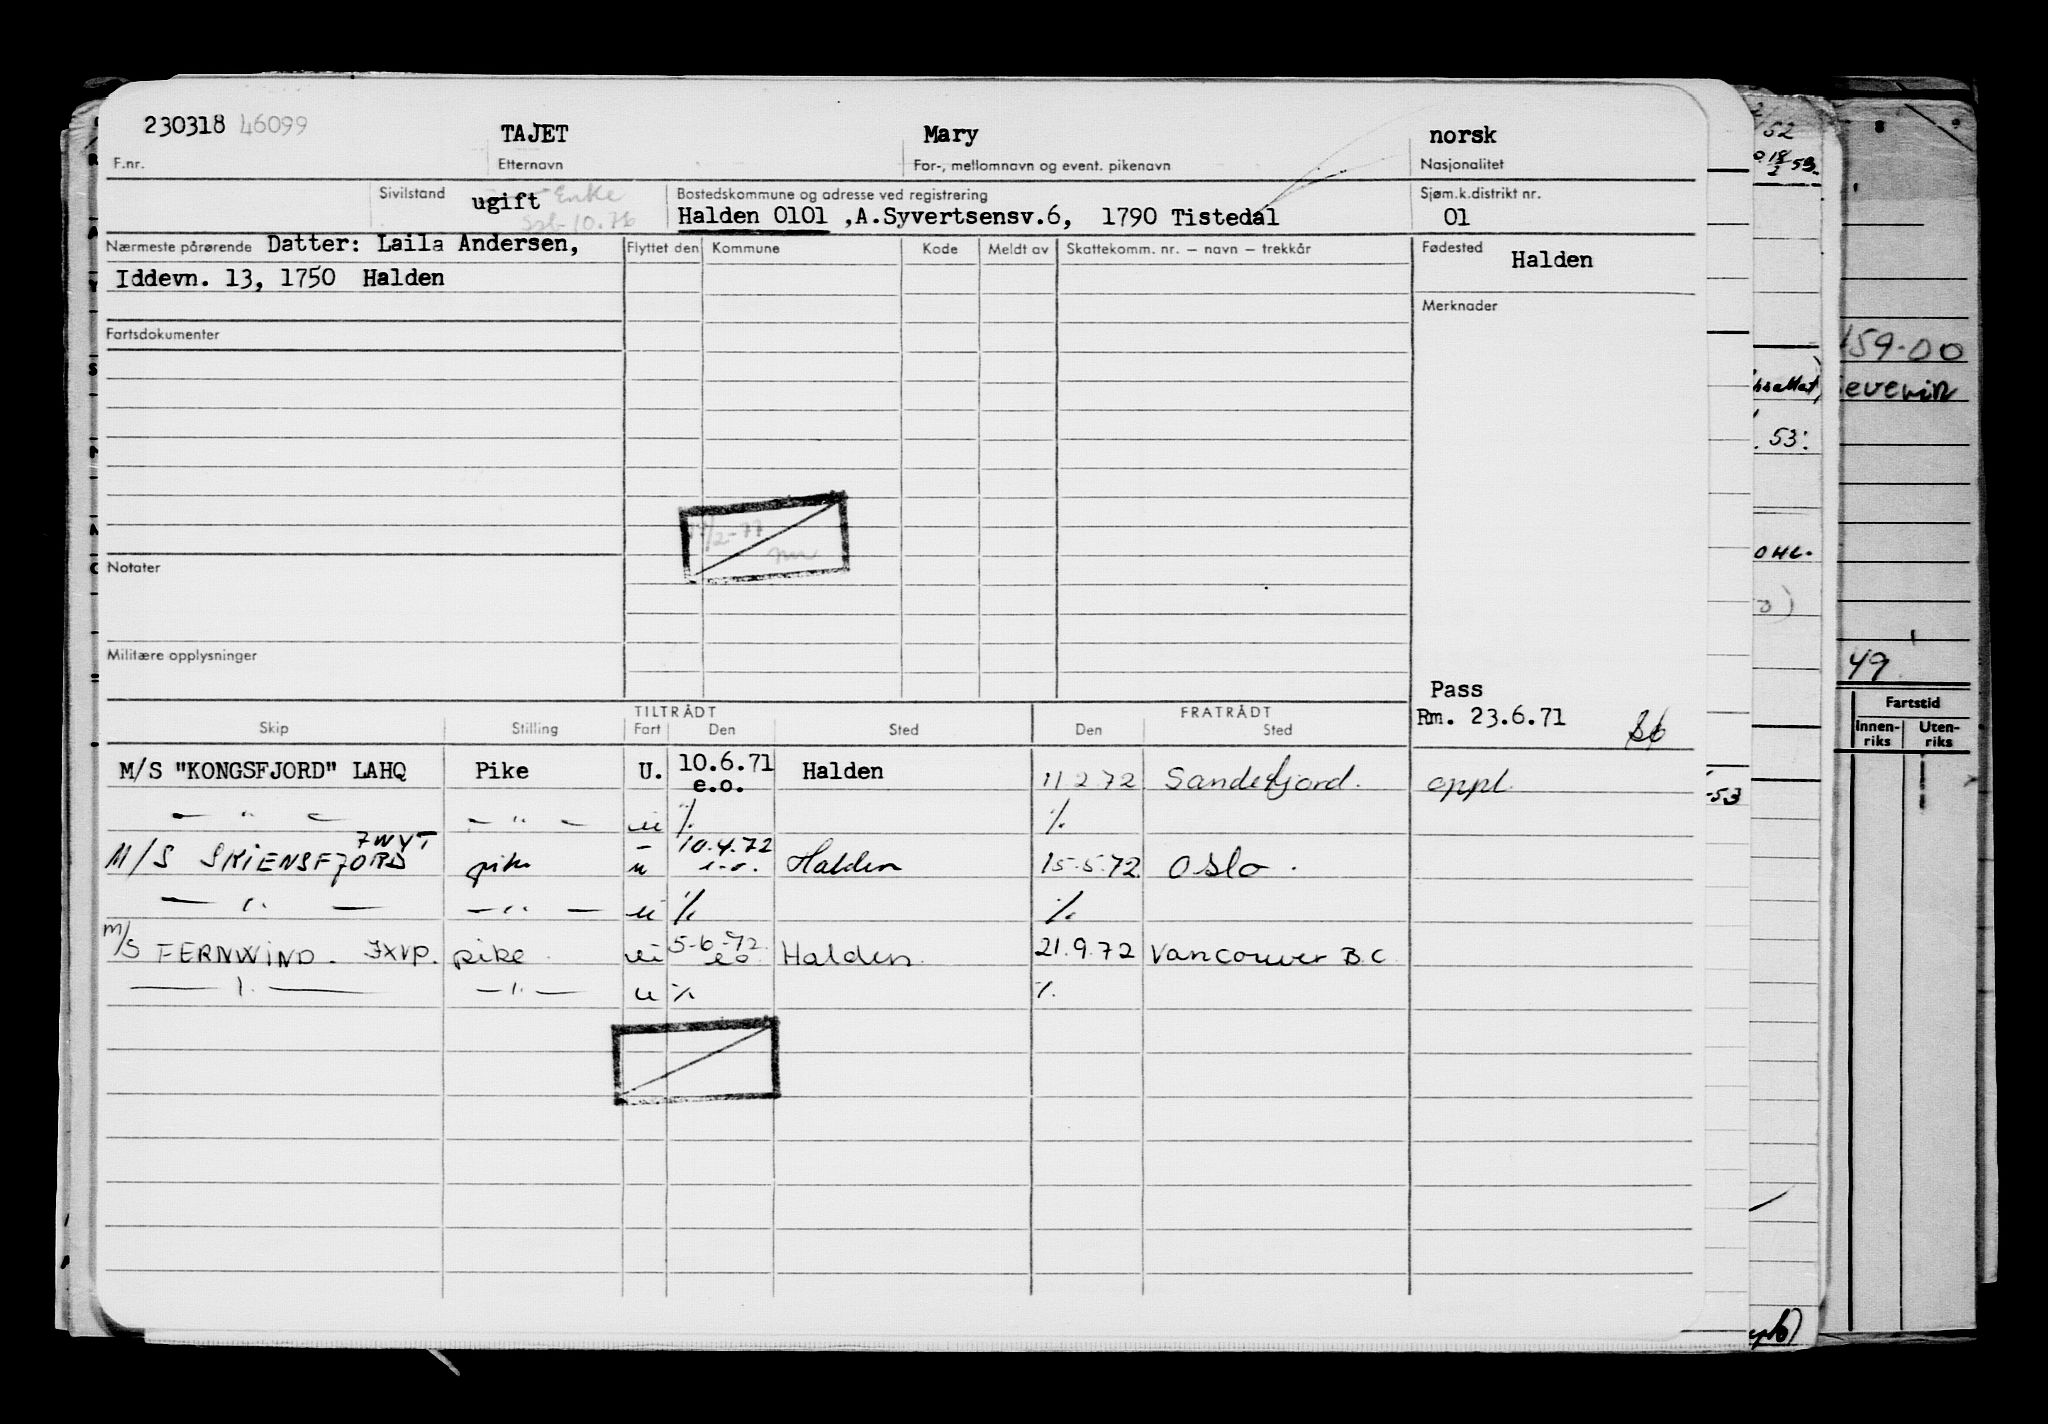 230318 46099 TAJET Mary norsk
F.nr. Etternavn For-, mellomnavn og event. pikenavn Nasjonalitet
Sivilstand ugift Enke Bostedskommune og adresse ved registrering Sjøm.k.distrikt nr.
10.76 Halden 0101 ,A.Syvertsensv.6, 1790 Tistedal 01
Nærmeste pårørende Datter: Laila Andersen, Flyttet den Kommune Kode Meldt av Skattekomm. nr. — navn — trekkår Fødested Halden
Iddevn. 13, 1750 Halden
Merknader
Fartsdokumenter
Notater
Militære opplysninger
Pass
Rm. 23.6.71
TILTRÅDT FRATRÅDT
Skip Stilling Fart Den Sted Den Sted
M/S "KONGSFJORD" LAHQ Pike U. 10.6.71 e.o. Halden 11 2 72 Sandefjord. oppl.
— " — — " — u % %
M/S SKIENSFJORD 7WYT pike u 10.4.72 e.o. Halden 15.5.72 Oslo.
— " — — " — u % %
M/S FERNWIND. JXVP. pike u 5-6-72 eo Halden. 21.9.72 Vancouver B.C.
— " — — " — u % %
2/52
53.
159.00
53.
49
Fartstid
Innen-riks Uten-riks
-53